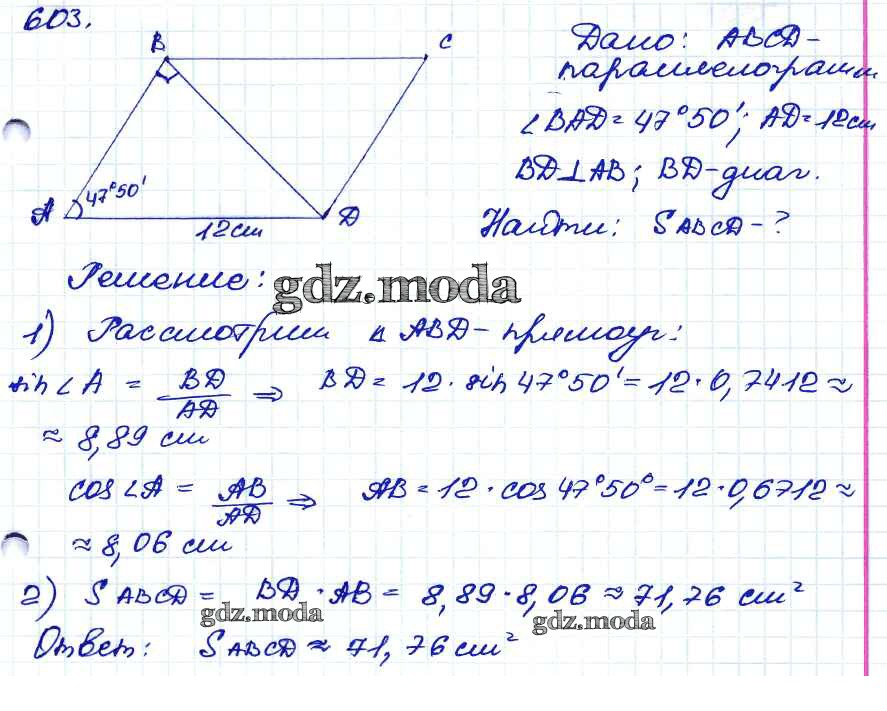 603.
B
C
47°50'
A
12 см
D
Дано: ABCD-
параллелограмм
∠BAD = 47°50'; AD = 12 см
BD⊥AB; BD-диаг.
Найти: SABCD - ?
Решение:
gdz.moda
1) Рассмотрим △ ABD - прямоуг:
sin∠A = BD/AD ⇒ BD = 12 · sin 47°50' = 12 · 0,7412 ≈
≈ 8,89 см
cos∠A = AB/AD ⇒ AB = 12 · cos 47°50° = 12 · 0,6712 ≈
≈ 8,06 см
2) SABCD = BD · AB = 8,89 · 8,06 ≈ 71,76 см²
gdz.moda
gdz.moda
Ответ: SABCD ≈ 71,76 см²